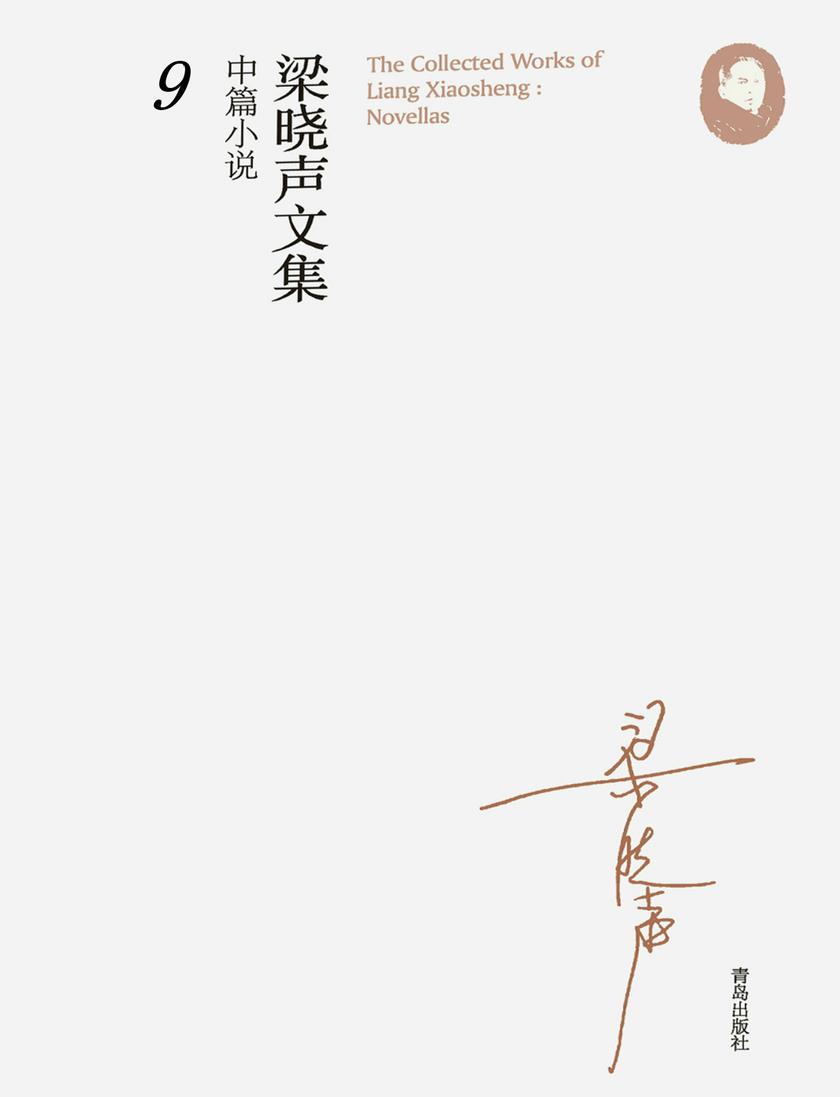 梁晓声文集
中篇小说
9
The Collected Works of
Liang Xiaosheng :
Novellas
梁晓声
青岛出版社